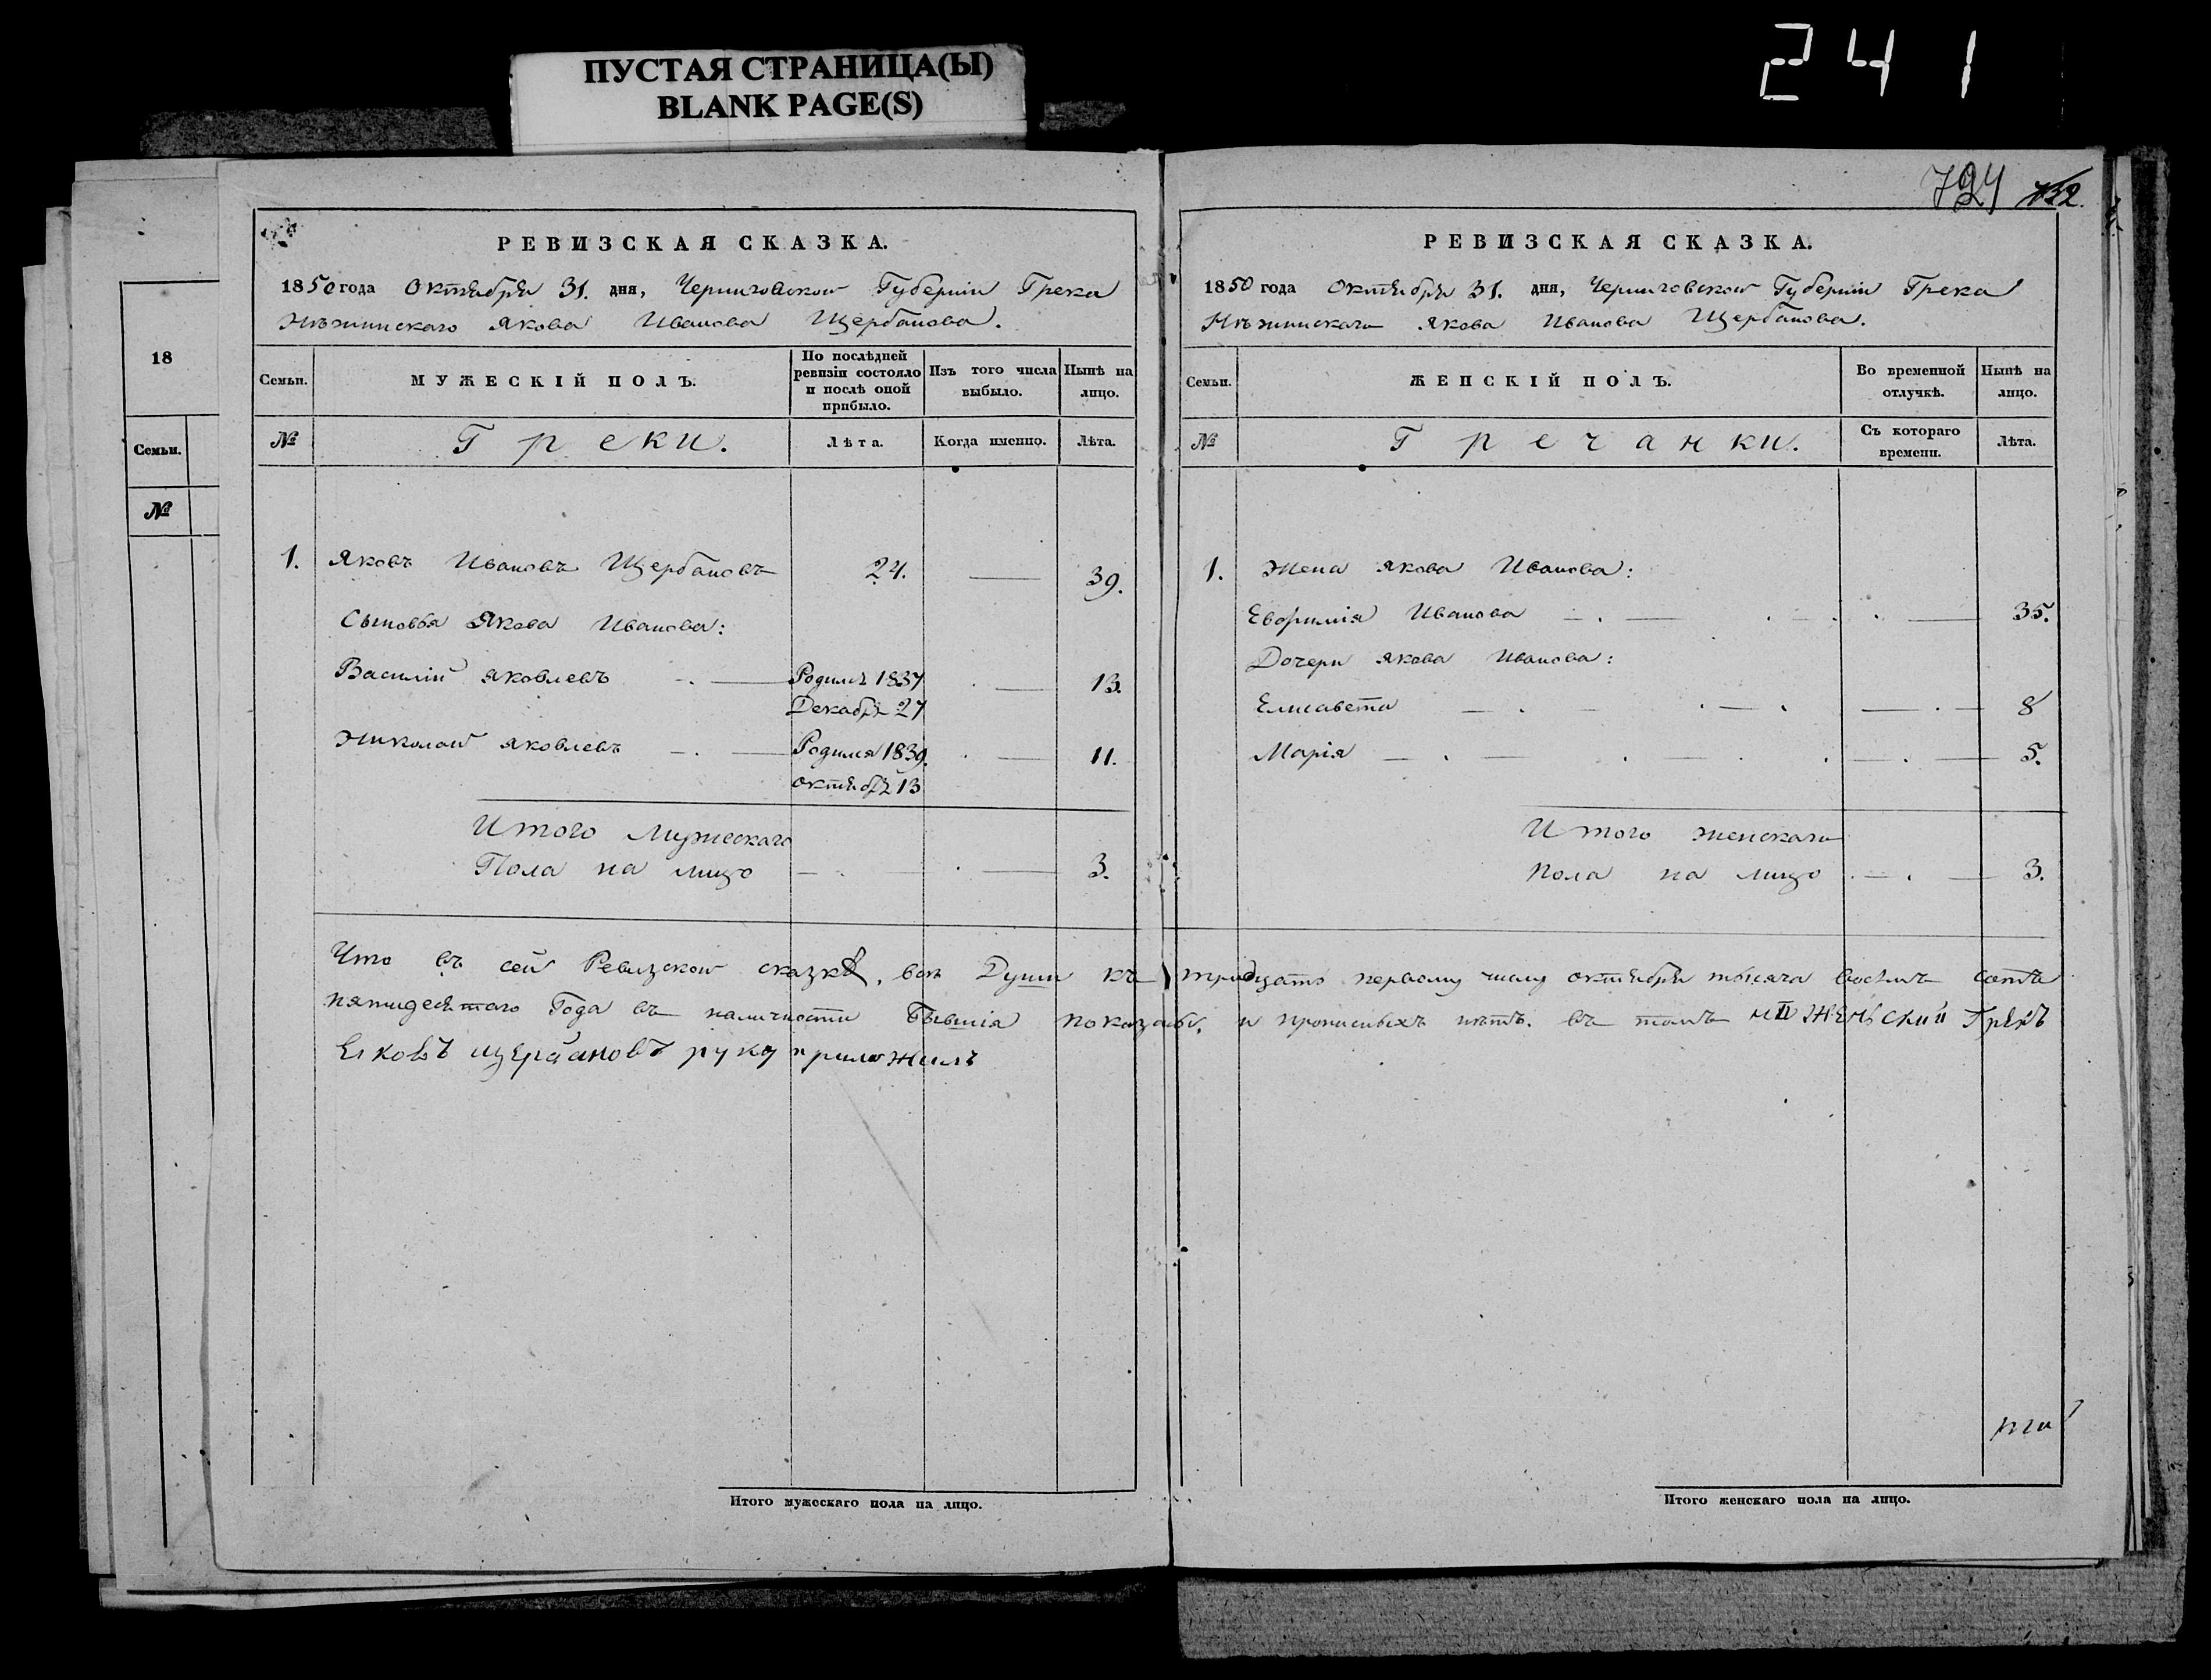 ПУСТАЯ СТРАНИЦА(Ы)
BLANK PAGE(S)
241
18
Семьи.
№
РЕВИЗСКАЯ СКАЗКА.
1850 года Октября 31. дня, Черниговской Губерніи Грека
Нѣжинскаго Якова Иванова Щербанова.
Семьи.
МУЖЕСКІЙ ПОЛЪ.
По послѣдней
ревизіи состояло
и послѣ оной
прибыло.
Изъ того числа
выбыло.
Нынѣ на
лицо.
№
Греки.
Лѣта.
Когда именно.
Лѣта.
1. Яковъ Ивановъ Щербановъ 24. 39.
Сыновья Якова Иванова:
Василій Яковлевъ Родился 1837 13.
Декабря 27
Николай Яковлевъ Родился 1839. 11.
Октября 13
Итого Мужескаго
Пола на лицо 3.
724 732.
РЕВИЗСКАЯ СКАЗКА.
1850 года Октября 31. дня, Черниговской Губерніи Грека
Нѣжинскаго Якова Иванова Щербанова.
Семьи.
ЖЕНСКІЙ ПОЛЪ.
Во временной
отлучкѣ.
Нынѣ на
лицо.
№
Гречанки.
Съ котораго
времени.
Лѣта.
1. Жена Якова Иванова:
Евфимія Иванова 35.
Дочери Якова Иванова:
Елисавета 8
Марія 5.
Итого женскаго
пола на лицо 3.
Что въ сей Ревизской сказкѣ, всѣ Души къ тридцать первому числу октября тысяча восемь сотъ
пятидесятаго Года въ наличности Бывшія показаны, и прописныхъ нѣтъ. въ томъ Грекъ
Яковъ щербановъ руку приложилъ
Итого мужескаго пола на лицо.
Итого женскаго пола на лицо.